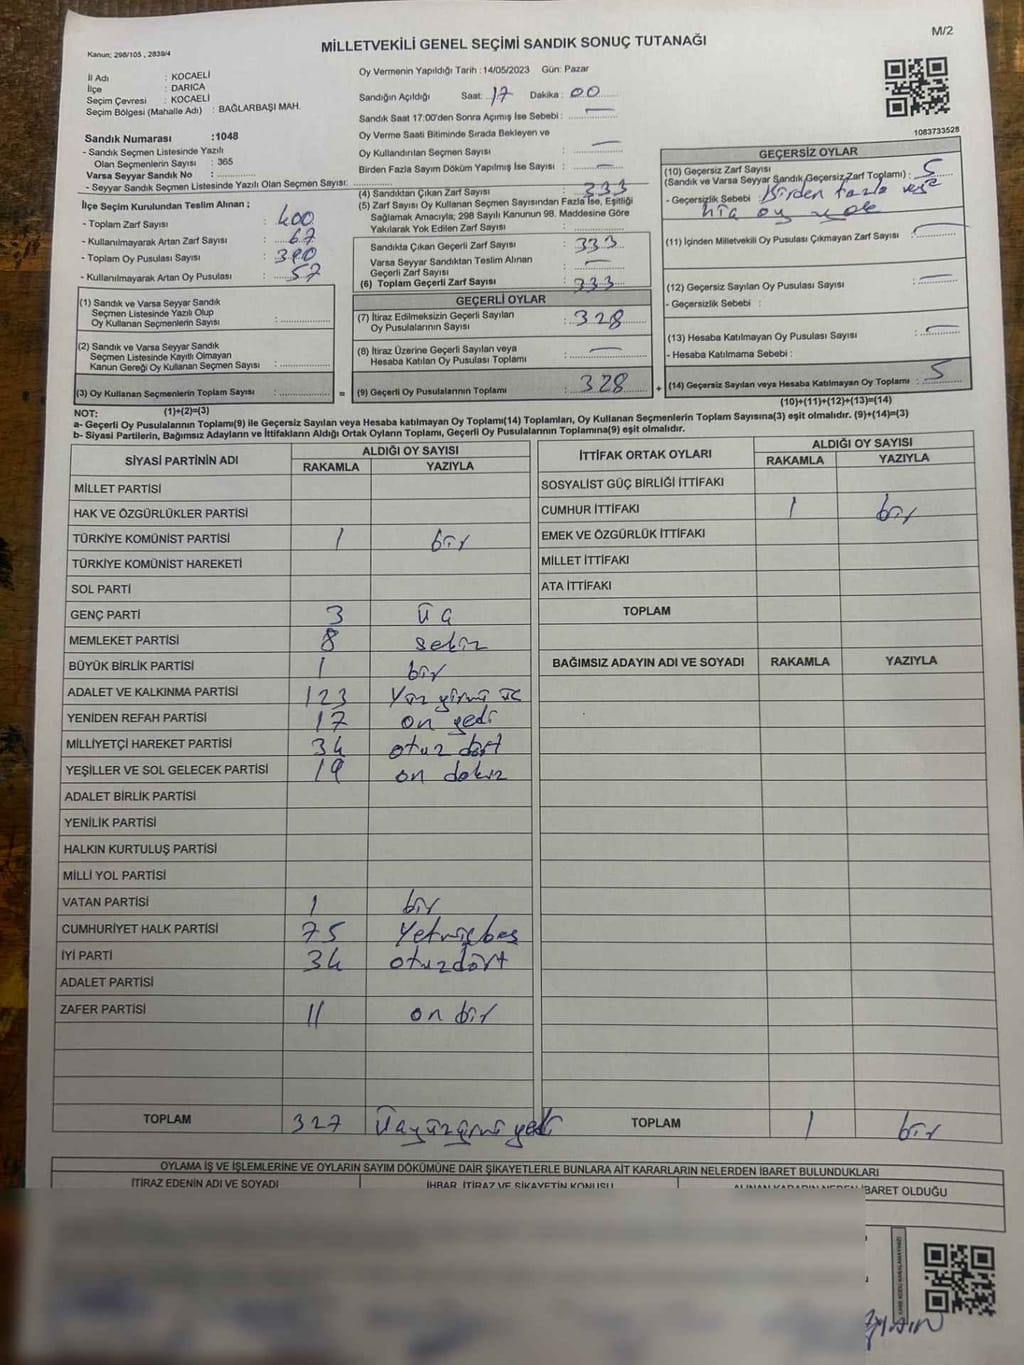 M/2
MİLLETVEKİLİ GENEL SEÇİMİ SANDIK SONUÇ TUTANAĞI
Kanun; 298/105 , 2839/4
İl Adı : KOCAELİ
İlçe : DARICA
Seçim Çevresi : KOCAELİ
Seçim Bölgesi (Mahalle Adı) : BAĞLARBAŞI MAH.
Sandık Numarası :1048
- Sandık Seçmen Listesinde Yazılı
Olan Seçmenlerin Sayısı : 365
Varsa Seyyar Sandık No :
- Seyyar Sandık Seçmen Listesinde Yazılı Olan Seçmen Sayısı:
İlçe Seçim Kurulundan Teslim Alınan ;
- Toplam Zarf Sayısı : 400
- Kullanılmayarak Artan Zarf Sayısı : 67
- Toplam Oy Pusulası Sayısı : 390
- Kullanılmayarak Artan Oy Pusulası : 57
(1) Sandık ve Varsa Seyyar Sandık
Seçmen Listesinde Yazılı Olup
Oy Kullanan Seçmenlerin Sayısı :
(2) Sandık ve Varsa Seyyar Sandık
Seçmen Listesinde Kayıtlı Olmayan
Kanun Gereği Oy Kullanan Seçmen Sayısı :
(3) Oy Kullanan Seçmenlerin Toplam Sayısı : =
(1)+(2)=(3)
Oy Vermenin Yapıldığı Tarih :14/05/2023 Gün: Pazar
Sandığın Açıldığı Saat: 17 Dakika : 00
Sandık Saat 17:00'den Sonra Açımış İse Sebebi : —
Oy Verme Saati Bitiminde Sırada Bekleyen ve
Oy Kullandırılan Seçmen Sayısı : —
Birden Fazla Sayım Döküm Yapılmış İse Sayısı : —
(4) Sandıktan Çıkan Zarf Sayısı : 333
(5) Zarf Sayısı Oy Kullanan Seçmen Sayısından Fazla İse, Eşitliği
Sağlamak Amacıyla; 298 Sayılı Kanunun 98. Maddesine Göre
Yakılarak Yok Edilen Zarf Sayısı :
Sandıkta Çıkan Geçerli Zarf Sayısı : 333
Varsa Seyyar Sandıktan Teslim Alınan
Geçerli Zarf Sayısı : —
(6) Toplam Geçerli Zarf Sayısı : 333
GEÇERLİ OYLAR
(7) İtiraz Edilmeksizin Geçerli Sayılan
Oy Pusulalarının Sayısı : 328
(8) İtiraz Üzerine Geçerli Sayılan veya
Hesaba Katılan Oy Pusulası Toplamı : —
(9) Geçerli Oy Pusulalarının Toplamı : 328 +
1083733528
GEÇERSİZ OYLAR
(10) Geçersiz Zarf Sayısı
(Sandık ve Varsa Seyyar Sandık Geçersiz Zarf Toplamı) : 5
- Geçersizlik Sebebi : Birden fazla veya
hiç oy yok
(11) İçinden Milletvekili Oy Pusulası Çıkmayan Zarf Sayısı : —
(12) Geçersiz Sayılan Oy Pusulası Sayısı : —
- Geçersizlik Sebebi :
(13) Hesaba Katılmayan Oy Pusulası Sayısı : —
- Hesaba Katılmama Sebebi :
(14) Geçersiz Sayılan veya Hesaba Katılmayan Oy Toplamı : 5
(10)+(11)+(12)+(13)=(14)
NOT:
a- Geçerli Oy Pusulalarının Toplamı(9) ile Geçersiz Sayılan veya Hesaba katılmayan Oy Toplamı(14) Toplamları, Oy Kullanan Seçmenlerin Toplam Sayısına(3) eşit olmalıdır. (9)+(14)=(3)
b- Siyasi Partilerin, Bağımsız Adayların ve İttifakların Aldığı Ortak Oyların Toplamı, Geçerli Oy Pusulalarının Toplamına(9) eşit olmalıdır.
SİYASİ PARTİNİN ADI ALDIĞI OY SAYISI
RAKAMLA YAZIYLA
MİLLET PARTİSİ
HAK VE ÖZGÜRLÜKLER PARTİSİ
TÜRKİYE KOMÜNİST PARTİSİ 1 bir
TÜRKİYE KOMÜNİST HAREKETİ
SOL PARTİ
GENÇ PARTİ 3 üç
MEMLEKET PARTİSİ 8 sekiz
BÜYÜK BİRLİK PARTİSİ 1 bir
ADALET VE KALKINMA PARTİSİ 123 Yüz yirmi üç
YENİDEN REFAH PARTİSİ 17 on yedi
MİLLİYETÇİ HAREKET PARTİSİ 34 otuz dört
YEŞİLLER VE SOL GELECEK PARTİSİ 19 on dokuz
ADALET BİRLİK PARTİSİ
YENİLİK PARTİSİ
HALKIN KURTULUŞ PARTİSİ
MİLLİ YOL PARTİSİ
VATAN PARTİSİ 1 bir
CUMHURİYET HALK PARTİSİ 75 Yetmişbeş
İYİ PARTİ 34 otuzdört
ADALET PARTİSİ
ZAFER PARTİSİ 11 on bir
TOPLAM 327 Üçyüzyirmi yedi
İTTİFAK ORTAK OYLARI ALDIĞI OY SAYISI
RAKAMLA YAZIYLA
SOSYALİST GÜÇ BİRLİĞİ İTTİFAKI
CUMHUR İTTİFAKI 1 bir
EMEK VE ÖZGÜRLÜK İTTİFAKI
MİLLET İTTİFAKI
ATA İTTİFAKI
TOPLAM
BAĞIMSIZ ADAYIN ADI VE SOYADI RAKAMLA YAZIYLA
TOPLAM 1 bir
OYLAMA İŞ VE İŞLEMLERİNE VE OYLARIN SAYIM DÖKÜMÜNE DAİR ŞİKAYETLERLE BUNLARA AİT KARARLARIN NELERDEN İBARET BULUNDUKLARI
İTİRAZ EDENİN ADI VE SOYADI İHBAR, İTİRAZ VE ŞİKAYETİN KONUSU ALINAN KARARIN NEDEN İBARET OLDUĞU